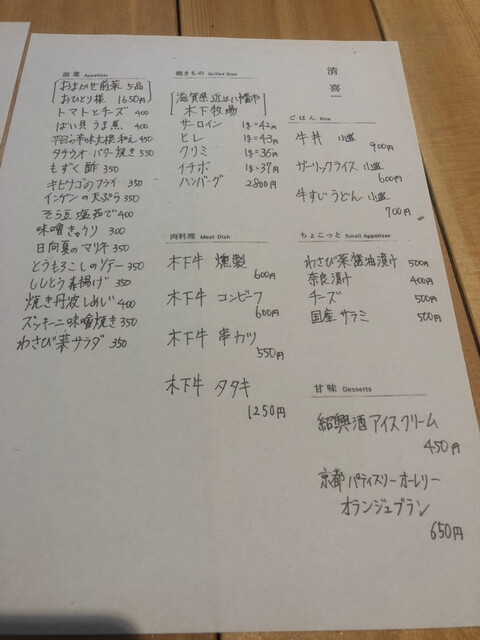 清喜
前菜 Appetizer
おまかせ前菜 5品
おひとり様 1650円
トマトとチーズ 400
ばい貝うま煮 400
平目の辛味大根和え 450
タチウオ バター焼き 550
もずく酢 350
キビナゴのフライ 350
インゲンの天ぷら 350
そら豆 塩茹で 400
味噌きゅうり 300
日向夏のマリネ 350
とうもろこしのソテー 350
ししとう素揚げ 350
焼き丹波しめじ 400
ズッキーニ味噌焼き 350
わさび菜サラダ 350
焼きもの Grilled Dish
滋賀県 近江八幡市
木下牧場
サーロイン 1g=42円
ヒレ 1g=43円
クリミ 1g=36円
イチボ 1g=39円
ハンバーグ 2800円
肉料理 Meat Dish
木下牛 燻製
600円
木下牛 コンビーフ
600円
木下牛 串カツ
550円
木下牛 タタキ
1250円
ごはん Rice
牛丼 小盛
900円
ガーリックライス 小盛
600円
牛すじうどん 小盛
700円
ちょこっと Small Appetizer
わさび菜醤油漬け 500円
奈良漬け 400円
チーズ 500円
国産サラミ 500円
甘味 Desserts
紹興酒アイスクリーム
450円
京都パティスリーオーレリー
オランジュブラン
650円